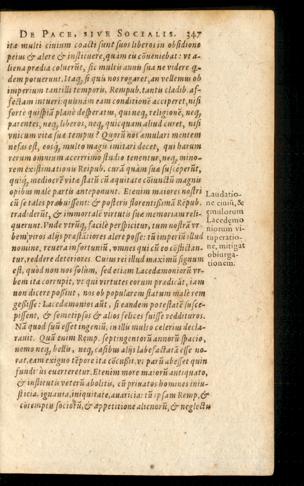 DE PACE, SIVE SOCIALIS. 347
ita multi ciuium coacti sunt suos liberos in obsidione
peius & alere & instituere, quàm eis cōueniebat: vt aliena
prædia coluerēt, sic multis annis sua ne videre quidem
potuerunt. Itaq́, si quis nos rogaret, an vellemus ob
imperium tantilli temporis, Rempub. tantis cladib. affectam
intueri: quinam eam conditionē acciperet, nisi
fortè quispiā planè desperatus, qui neq, religionē, neq,
parentes, neq, liberos, neq, quicquam aliud curet, nisi
vnicum vitæ suæ tempus? Quorū nos æmulari mentem
nefas est, eosq́, multo magis imitari decet, qui harum
rerum omnium acerrimo studio tenentur, neq, minorem
existimationis Reipub. curā quàm suæ suscipiūt,
quiq́, mediocrē vitæ statū cū æquitate cōiunctū magnis
opibus malè partis anteponunt. Etenim maiores nostri
cū se tales præbuissent: & posteris florentissimā Rēpub.
tradiderūt, & immortalē virtutis suæ memoriam reliquerunt.
Vnde vtrūq́, facilè perspicitur, tum nostrā vrbem
viros alijs præstātiores alere posse: tū imperiū illud
nomine, reuera infortuniū, omnes qui cū eo cōflictantur,
reddere deteriores. Cuius rei illud maximū signum
est, quòd non nos solùm, sed etiam Lacedæmoniorū vrbem
ita corrupit, vt qui virtutes eorum prædicāt, iam
non dicere possint, nos ob popularem statum malè rem
gessisse: Lacedæmonios aūt, si eandem potestatē suscepissent,
& semetipsos & alios felices fuisse reddituros.
Nā quod suū esset ingeniū, in illis multo celerius declarauit.
Quā enim Remp. septingentorū annorū spacio,
nemo neq, bellis, neq, casibus alijs labefactatā esse norat,
eam exiguo tēpore ita cōcussit, vt parū abesset quin
funditùs euerteretur. Etenim more maiorū antiquato,
& institutis veterū abolitis, cū priuatos homines iniustitia,
iguauia, iniquitate, auaritia: tū ipsam Remp. &
contemptu sociorū, & appetitione alienorū, & neglectu
Laudatione
ciuiū, &
similorum
Lacedemoniorum
vituperatione,
mitigat
obiurgationem.